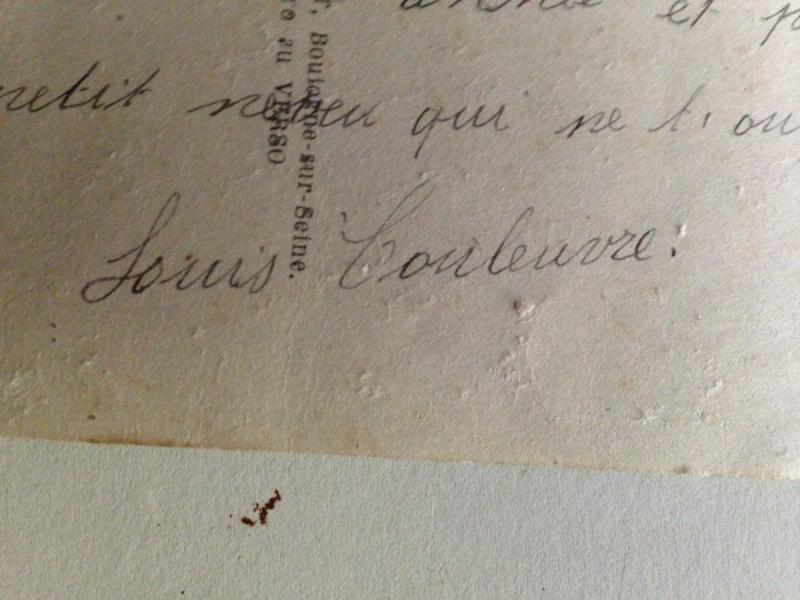 année et p
petit neveu qui ne t'ou
Louis Couleuvre.
r, Boulogne-sur-Seine.
ro au VERSO